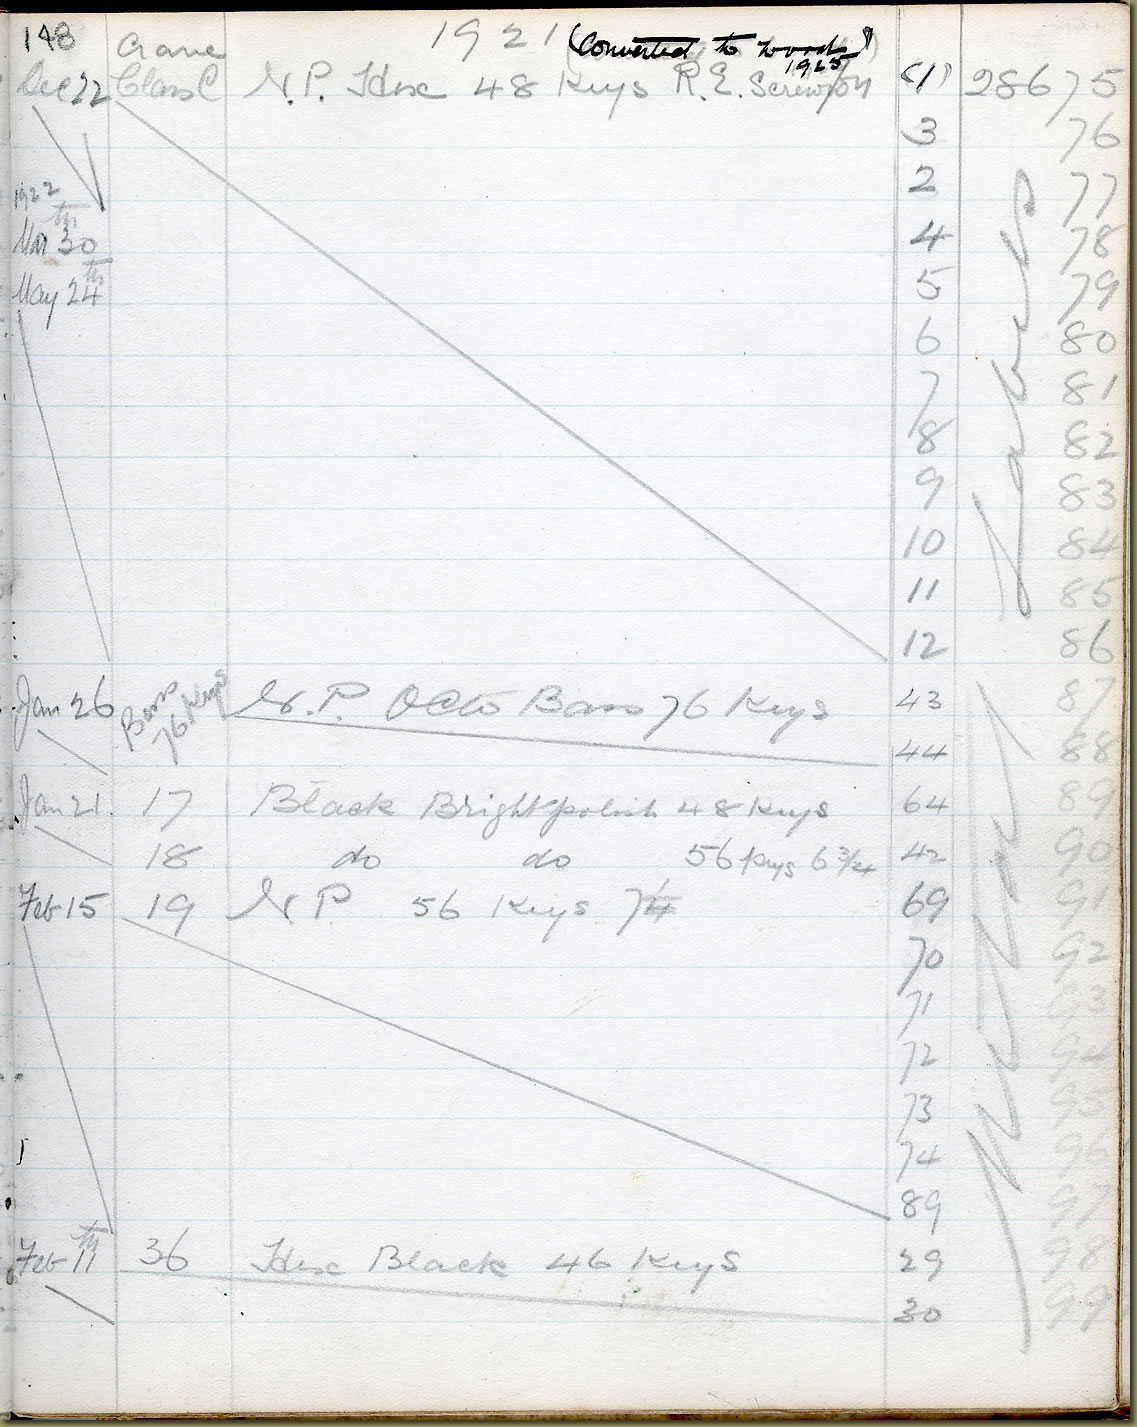 148 Crane 1921 (Converted to wood 1925)
Dec 22 Class C N.P. Hex 48 Keys R.E. Screw (1) 28675
3 76
1922 2 77
Mar 30th 4 78
May 24th 5 79
6 80
7 81
8 82
9 83
10 84
11 85
12 86
Jan 26 Bass 76 Keys N.P. Octo Bass 76 Keys 43 87
44 88
Jan 21. 17 Black Bright polish 48 Keys 64 89
18 do do 56 Keys 6 3/4 42 90
Feb 15 19 N P 56 Keys 7 69 91
70 92
71 93
72 94
73 95
74 96
89 97
Feb 11th 36 Hex Black 46 Keys 29 98
30 99